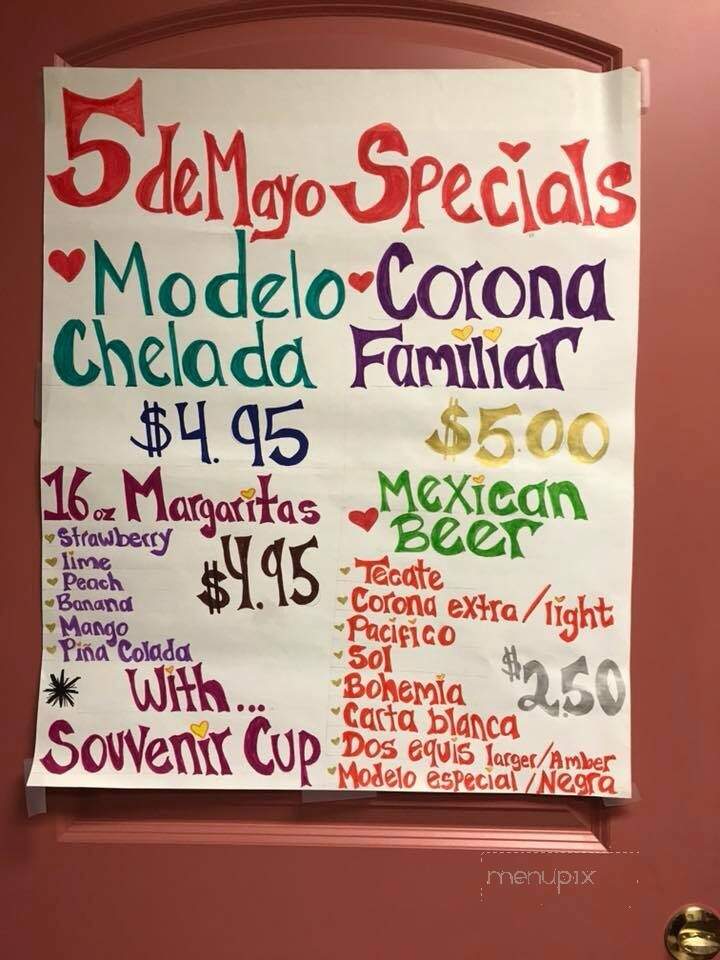 5 de Mayo Specials
Modelo
Chelada
$4.95
Corona
Familiar
$5.00
16 oz Margaritas
Strawberry
lime
Peach
Banana
Mango
Piña Colada
$4.95
* With...
Souvenir Cup
Mexican
Beer
Tecate
Corona extra/light
Pacifico
Sol
Bohemia
Carta blanca
Dos equis larger/Amber
Modelo especial/Negra
$2.50
menupix